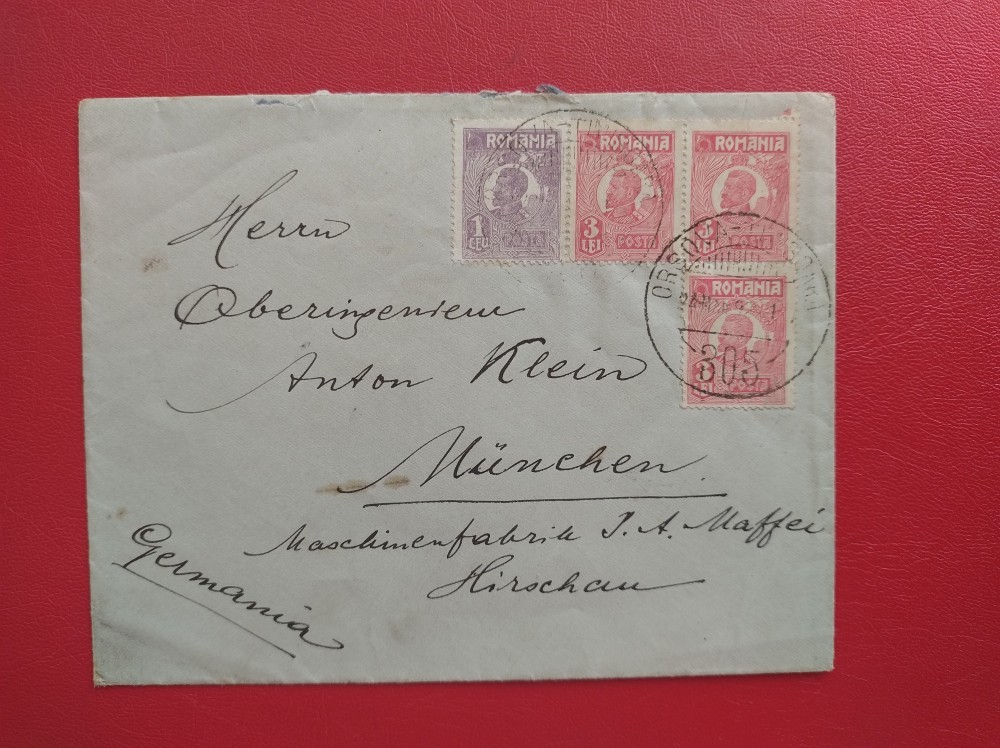 ROMANIA
1
LEU
POSTA
ROMANIA
3
LEI
POSTA
ROMANIA
3
LEI
POSTA
ROMANIA
LEI
POSTA
305
Herrn
Oberingenieur
Anton Klein
München.
Maschinenfabrik J. A. Maffei
Hirschau
Germania